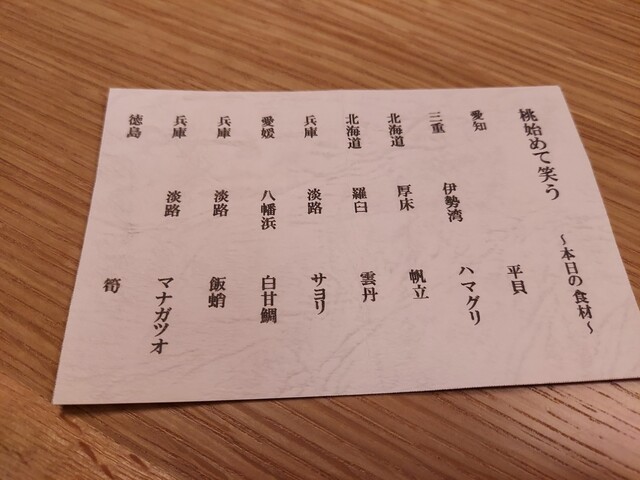 桃始めて笑う ～本日の食材～
愛知 平貝
三重 伊勢湾 ハマグリ
北海道 厚床 帆立
北海道 羅臼 雲丹
兵庫 淡路 サヨリ
愛媛 八幡浜 白甘鯛
兵庫 淡路 飯蛸
兵庫 淡路 マナガツオ
徳島 筍